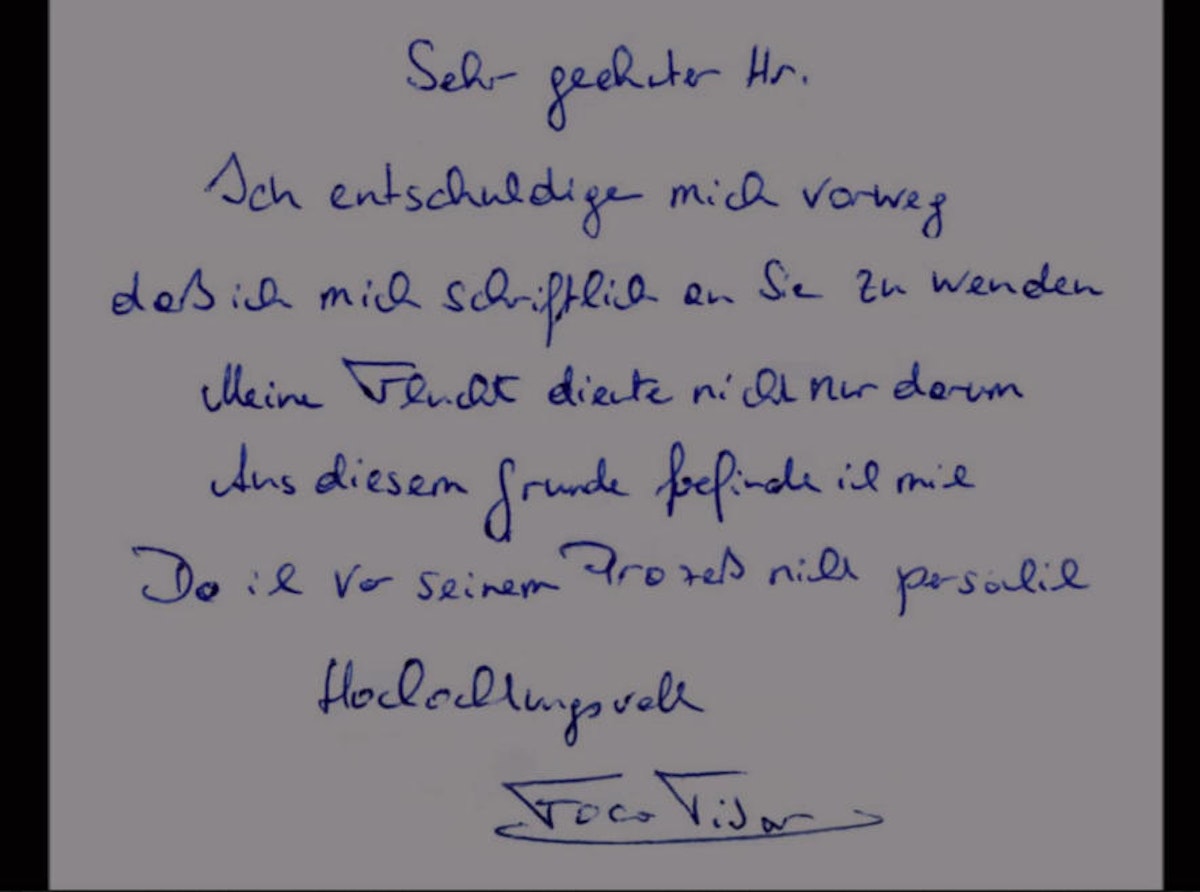 Sehr geehrter Hr.
Ich entschuldige mich vorweg
daß ich mich schriftlich an Sie zu wenden
Meine Flucht diente nicht nur darum
Aus diesem Grunde befinde ich mich
Da ich vor seinem Prozeß nicht persölich
Hochachtungsvoll